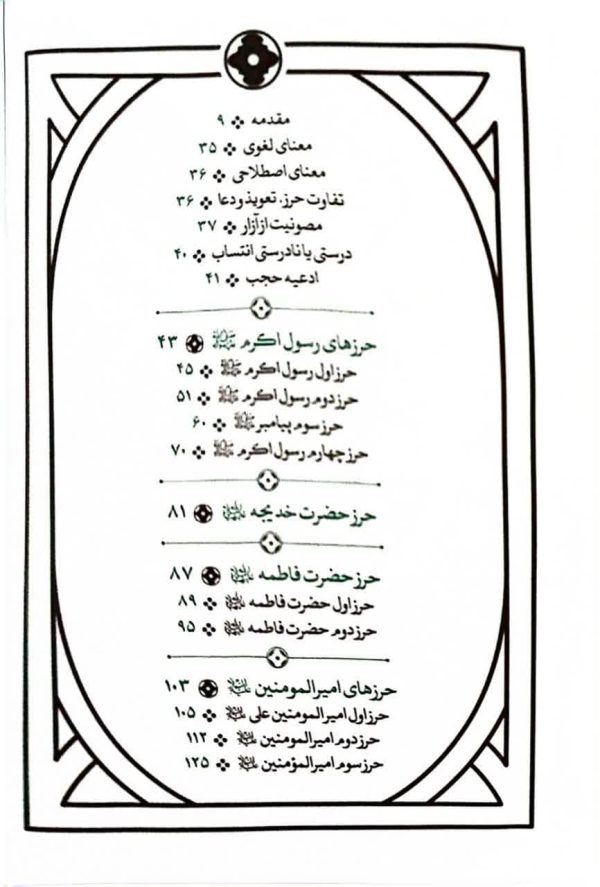 مقدمه ۹
معنای لغوی ۳۵
معنای اصطلاحی ۳۶
تفاوت حرز، تعویذ و دعا ۳۶
مصونیت از آزار ۳۷
درستی یا نادرستی انتساب ۴۰
ادعیه حجب ۴۱
حرزهای رسول اکرم ﷺ ۴۳
حرز اول رسول اکرم ﷺ ۴۵
حرز دوم رسول اکرم ﷺ ۵۱
حرز سوم پیامبر ﷺ ۶۰
حرز چهارم رسول اکرم ﷺ ۷۰
حرز حضرت خدیجه ۸۱
حرز حضرت فاطمه ۸۷
حرز اول حضرت فاطمه ۸۹
حرز دوم حضرت فاطمه ۹۵
حرزهای امیرالمومنین ۱۰۳
حرز اول امیرالمومنین علی ۱۰۵
حرز دوم امیرالمومنین ۱۱۲
حرز سوم امیرالمؤمنین ۱۲۵